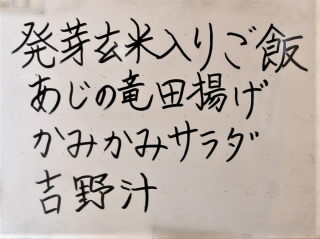 発芽玄米入りご飯
あじの竜田揚げ
かみかみサラダ
吉野汁